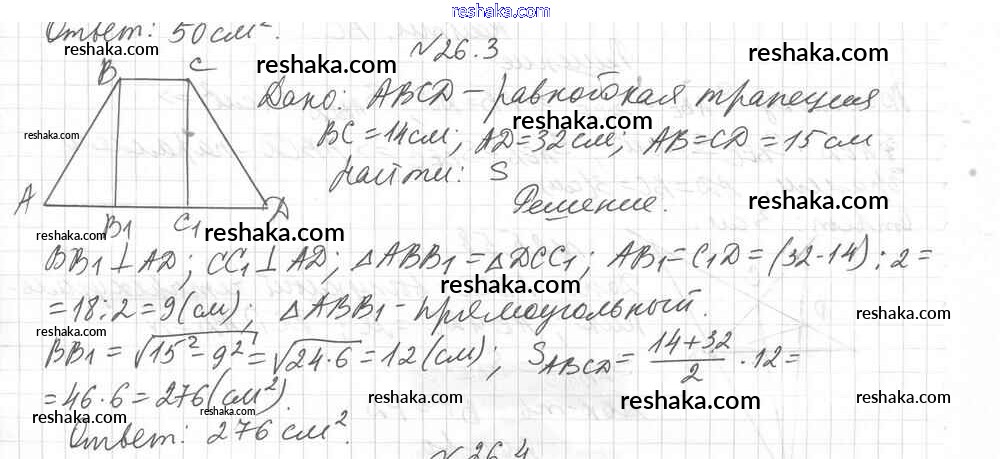 www.reshaka.com
Ответ: 50 см².
reshaka.com
N 26.3
reshaka.com
reshaka.com
B C
Дано: ABCD – равнобокая трапеция
reshaka.com
BC = 14 см; AD = 32 см; AB = CD = 15 см
reshaka.com
reshaka.com
Найти: S
A B1 C1 D
Решение.
reshaka.com
reshaka.com
reshaka.com
BB1 ⊥ AD; CC1 ⊥ AD; △ABB1 = △DCC1; AB1 = C1D = (32-14) : 2 =
reshaka.com
reshaka.com
= 18 : 2 = 9 (см); △ABB1 – прямоугольный.
reshaka.com
reshaka.com
reshaka.com
BB1 = √15² - 9² = √24·6 = 12 (см); SABCD = 14+32/2 · 12 =
= 46 · 6 = 276 (см²).
reshaka.com
reshaka.com
reshaka.com
reshaka.com
reshaka.com
Ответ: 276 см².
N 26.4